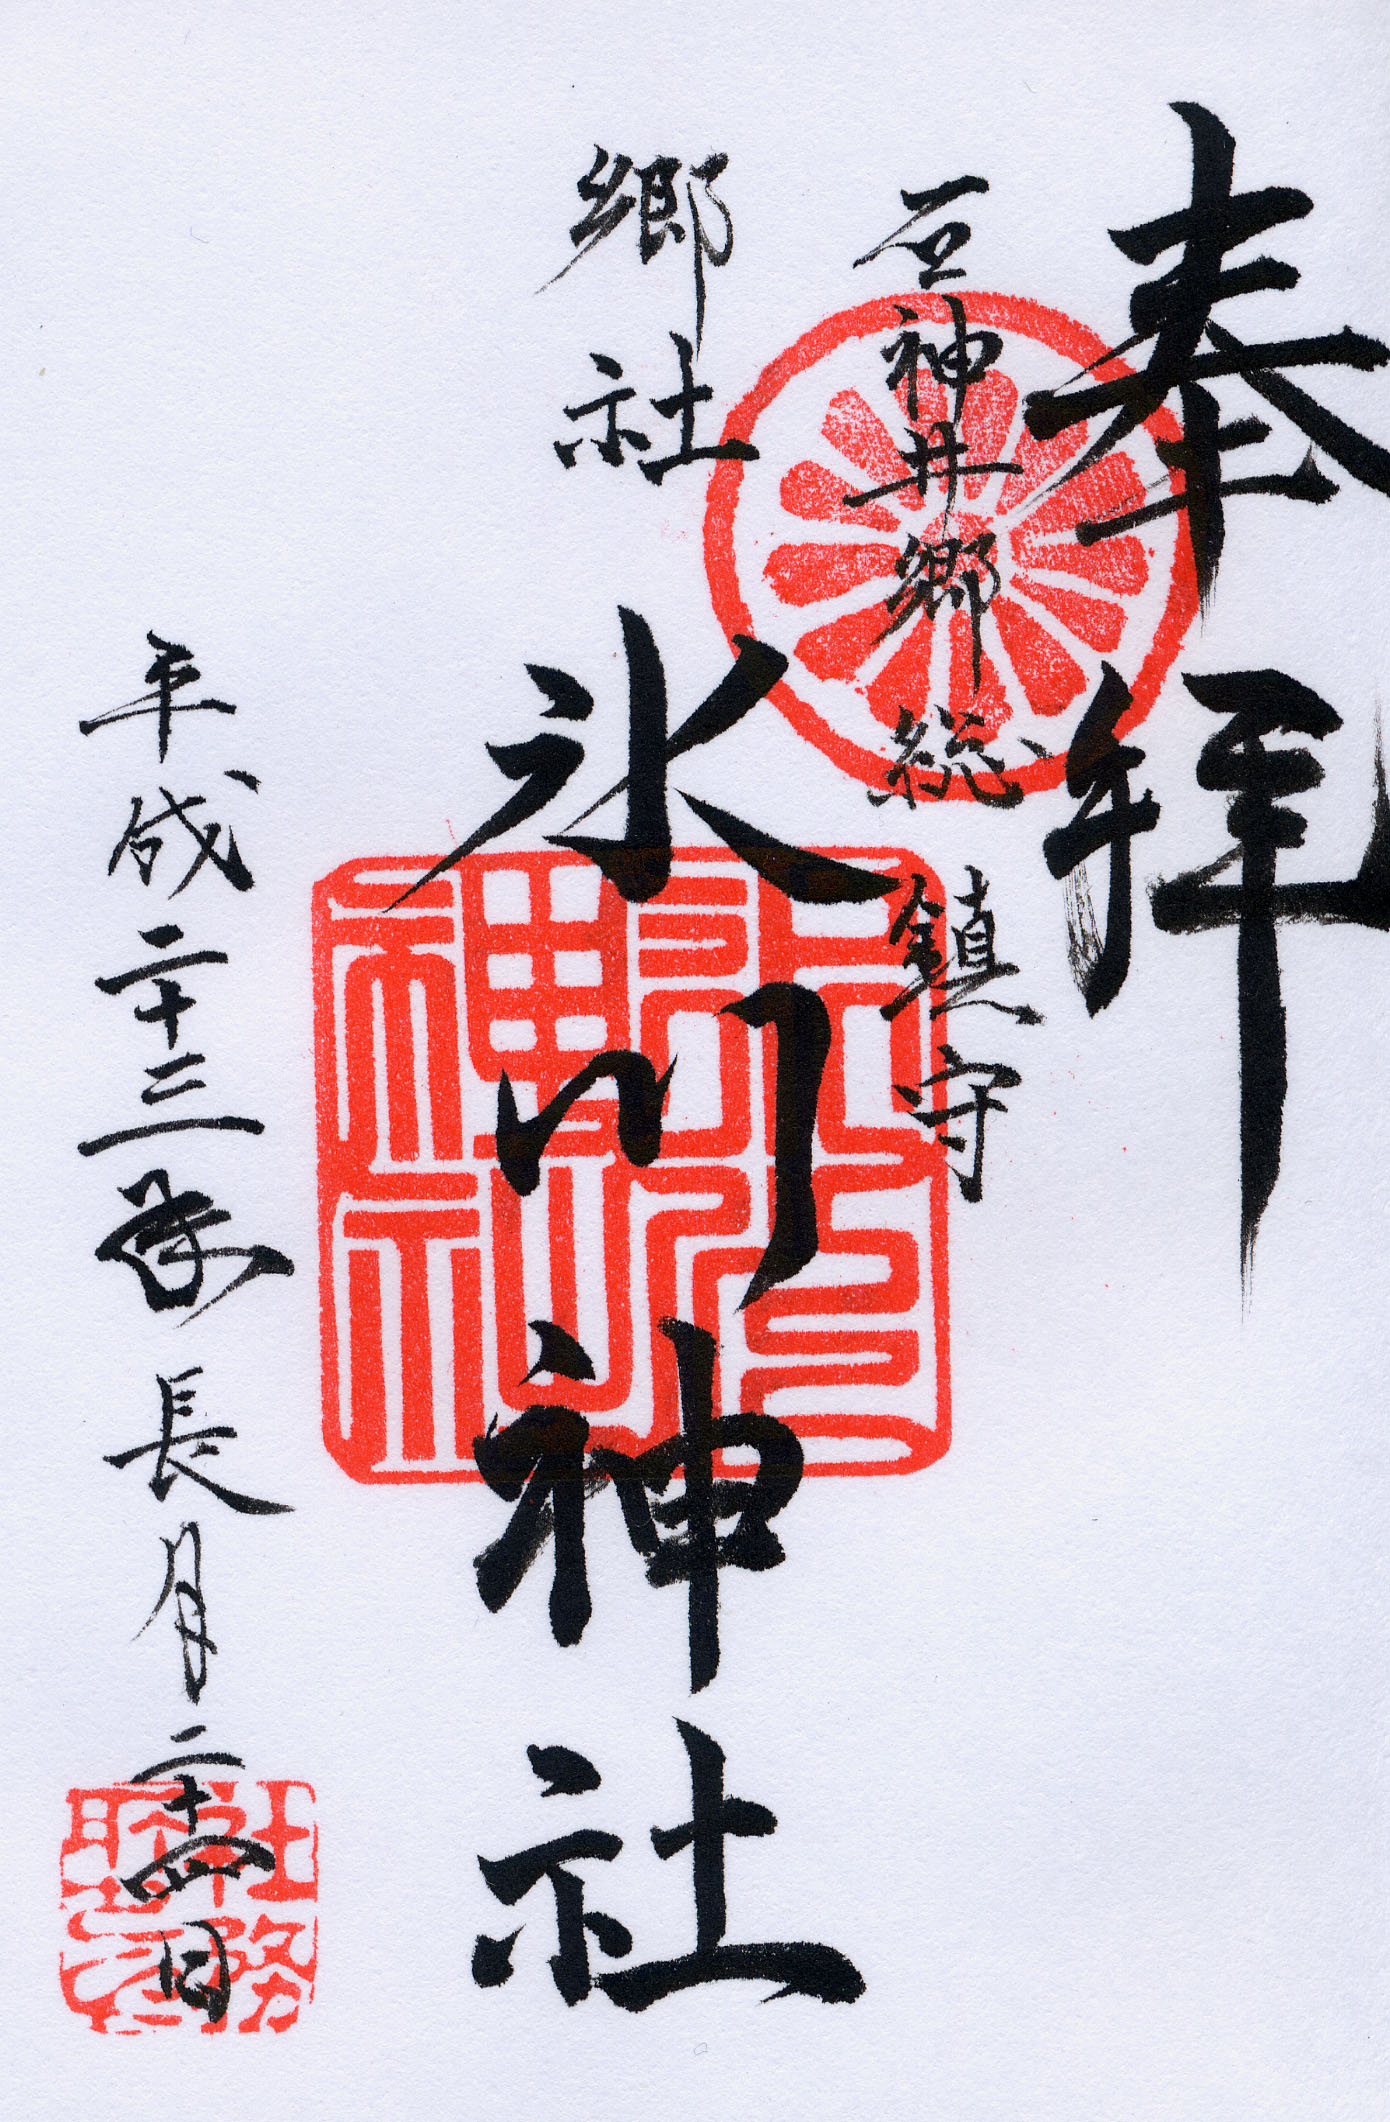 奉拝
石神井郷総鎮守
郷社
氷川神社
平成二十三年長月二十四日
氷川神社
社務